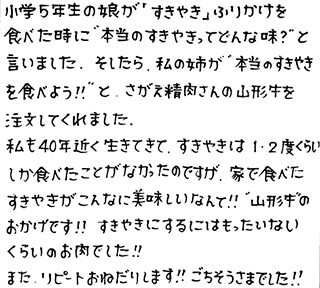 小学5年生の娘が「すきやき」ふりかけを
食べた時に"本当のすきやきってどんな味?"と
言いました。そしたら、私の姉が"本当のすきやき
を食べよう!!"と、さがえ精肉さんの山形牛を
注文してくれました。
私も40年近く生きてきて、すきやきは1・2度くらい
しか食べたことがなかったのですが、家で食べた
すきやきがこんなに美味しいなんて!!"山形牛"の
おかげです!! すきやきにするにはもったいない
くらいのお肉でした!!
また、リピートおねだりします!! ごちそうさまでした!!